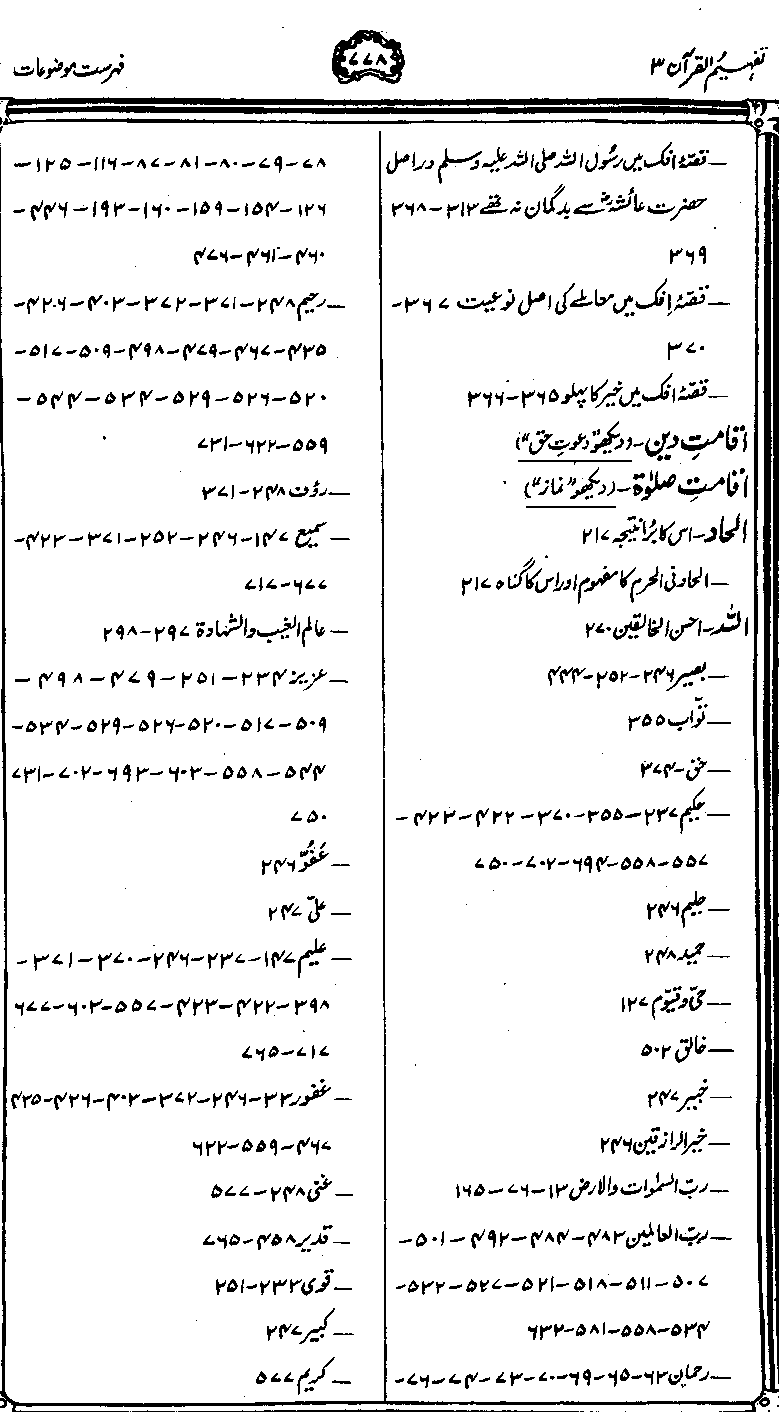 تفہیم القرآن ۳
۷۷۸
فہرست موضوعات
— قصّۂ افک میں رسُول اللہ صلی اللہ علیہ وسلم دراصل
حضرت عائشہؓ سے بدگمان نہ تھے ۳۱۳-۳۶۸
۳۶۹
— قصّۂ اِفک میں معاملے کی اصل نوعیت ۳۶۷-
۳۷۰
— قصّۂ افک میں خیر کا پہلو ۳۶۵-۳۶۶
اقامتِ دین - (دیکھو "دعوتِ حق")
اقامتِ صلوٰۃ - (دیکھو "نماز")
الحاد - اس کا بُرا نتیجہ ۲۱۷
— الحاد فی الحرم کا مفہوم اور اس کا گناہ ۲۱۷
اللہ - احسن الخالقین ۲۷۰
— بصیر ۲۴۶-۲۵۲-۴۴۴
— توّاب ۳۵۵
— حق - ۳۷۴
— حکیم ۲۳۷-۳۵۵-۳۷۰-۴۲۲-۴۲۳-
۵۵۷-۵۵۸-۶۹۴-۷۰۲-۷۵۰
— حلیم ۲۴۶
— حمید ۲۴۸
— حیّ و قیّوم ۱۲۷
— خالق ۵۰۲
— خبیر ۲۴۷
— خیر الرازقین ۲۴۶
— ربّ السمٰوات والارض ۱۳-۷۶-۱۶۵
— ربّ العالمین ۴۸۲-۴۸۴-۴۹۲-۵۰۱-
۵۰۷-۵۱۱-۵۱۸-۵۲۱-۵۲۷-۵۳۲-
۵۳۴-۵۵۸-۵۸۱-۶۳۲
— رحمان ۶۲-۶۵-۶۹-۷۰-۷۳-۷۴-۷۶-
۷۸-۷۹-۸۰-۸۱-۸۷-۱۱۶-۱۲۵-
۱۲۶-۱۵۴-۱۵۹-۱۶۰-۱۹۳-۴۴۶-
۴۶۰-۴۶۱-۴۷۶
— رحیم ۲۴۸-۳۷۱-۳۷۲-۴۰۳-۴۲۶-
۴۳۵-۴۶۷-۴۷۹-۴۹۸-۵۰۹-۵۱۷-
۵۲۰-۵۲۶-۵۲۹-۵۳۴-۵۴۴-
۵۵۹-۶۲۲-۷۳۱
— رؤف ۲۴۸-۳۷۱
— سمیع ۱۴۷-۲۴۶-۲۵۲-۳۷۱-۴۲۳-
۶۷۷-۷۱۷
— عالم الغیب والشہادۃ ۲۹۷-۲۹۸
— عزیز ۲۳۴-۲۵۱-۴۷۹-۴۹۸-
۵۰۹-۵۱۷-۵۲۰-۵۲۶-۵۲۹-۵۳۴-
۵۴۴-۵۵۸-۶۰۳-۶۹۳-۷۰۲-۷۳۱
۷۵۰
— عُفُوٌّ ۲۴۶
— علیّ ۲۴۷
— علیم ۱۴۷-۲۳۷-۲۴۶-۳۷۰-۳۷۱-
۳۹۸-۴۲۲-۴۲۳-۵۵۷-۶۰۳-۶۷۷
۷۱۷-۷۶۵
— غفور ۳۳-۲۴۶-۳۷۲-۴۰۳-۴۲۶-۴۳۵
۴۶۷-۵۵۹-۶۲۲
— غنی ۲۴۸-۵۷۷
— قدیر ۴۵۸-۷۶۵
— قوی ۲۳۲-۲۵۱
— کبیر ۲۴۷
— کریم ۵۷۷